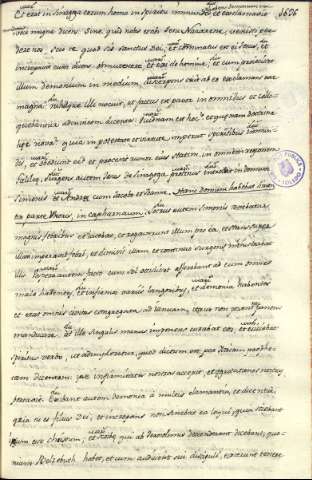 Et erat in sinagoga eorum homo in spiritu inmundo, et exclamavit
voce magna dicens. Sine, quid nobis et tibi Iesu Nazarene, venisti per-
dere nos, scio te quod sis sanctus Dei, et comminatus est ei Iesus, et
increpavit eum dicens. Obmutesce, et exi de homine, et cum proiecisset
illum demonium in medium, discerpens exiit ab eo exclamans voce
magna, nihilque illi nocuit, et factus est pavor in omnibus et collo-
quebantur adinvicem dicentes. Quidnam est hoc, et quaenam doctrina
haec nova? quia in potestate et virtute imperat spiritibus inmun-
dis, et obediunt ei, et processit rumor eius statim in omnem regionem
Galileae. Surgens autem Iesus de sinagoga protinus introivit in domum
Simonis et Andreae cum Iacobo et Ioanne.
ex parte in capharnaum. Socrus autem Simonis tenebatur
magnis febribus et iacebat, et rogaverunt illum pro ea, et stans super
illam imperavit febri, et dimisit illam et continuo surgens ministrabat
illis. Vespera autem facto cum sol occidisset afferebant ad eum omnes
male habentes, et infirmos variis languoribus, et demonia habentes
et erat omnis civitas congregata ad ianuam, itaut non
manducare. At ille singulis manus imponens curabat eos, et eiiciebat
spiritus verbo, ut adimpleretur, quod dictum est per Isaiam prophe-
tam dicentem: ipse infirmitates nostras accepit, et egrotationes nostras
portavit. Exibant autem demonia a multis clamantia, et dicentia,
quia tu es filius Dei, et increpans non sinebat ea loqui, quia sciebant
ipsum esse christum, et scribae qui ab Ierosolimis descenderant dicebant, quo-
niam Belzebub habet, et cum audissent sui discipuli, exierunt tenere